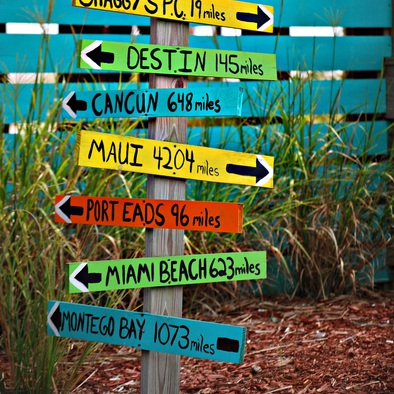 SHAGGY'S P.C. 19 miles
DEST.IN 145 miles
CANCUN 648 miles
MAUI 4204 miles
PORT EADS 96 miles
MIAMI BEACH 623 miles
MONTEGO BAY 1073 miles